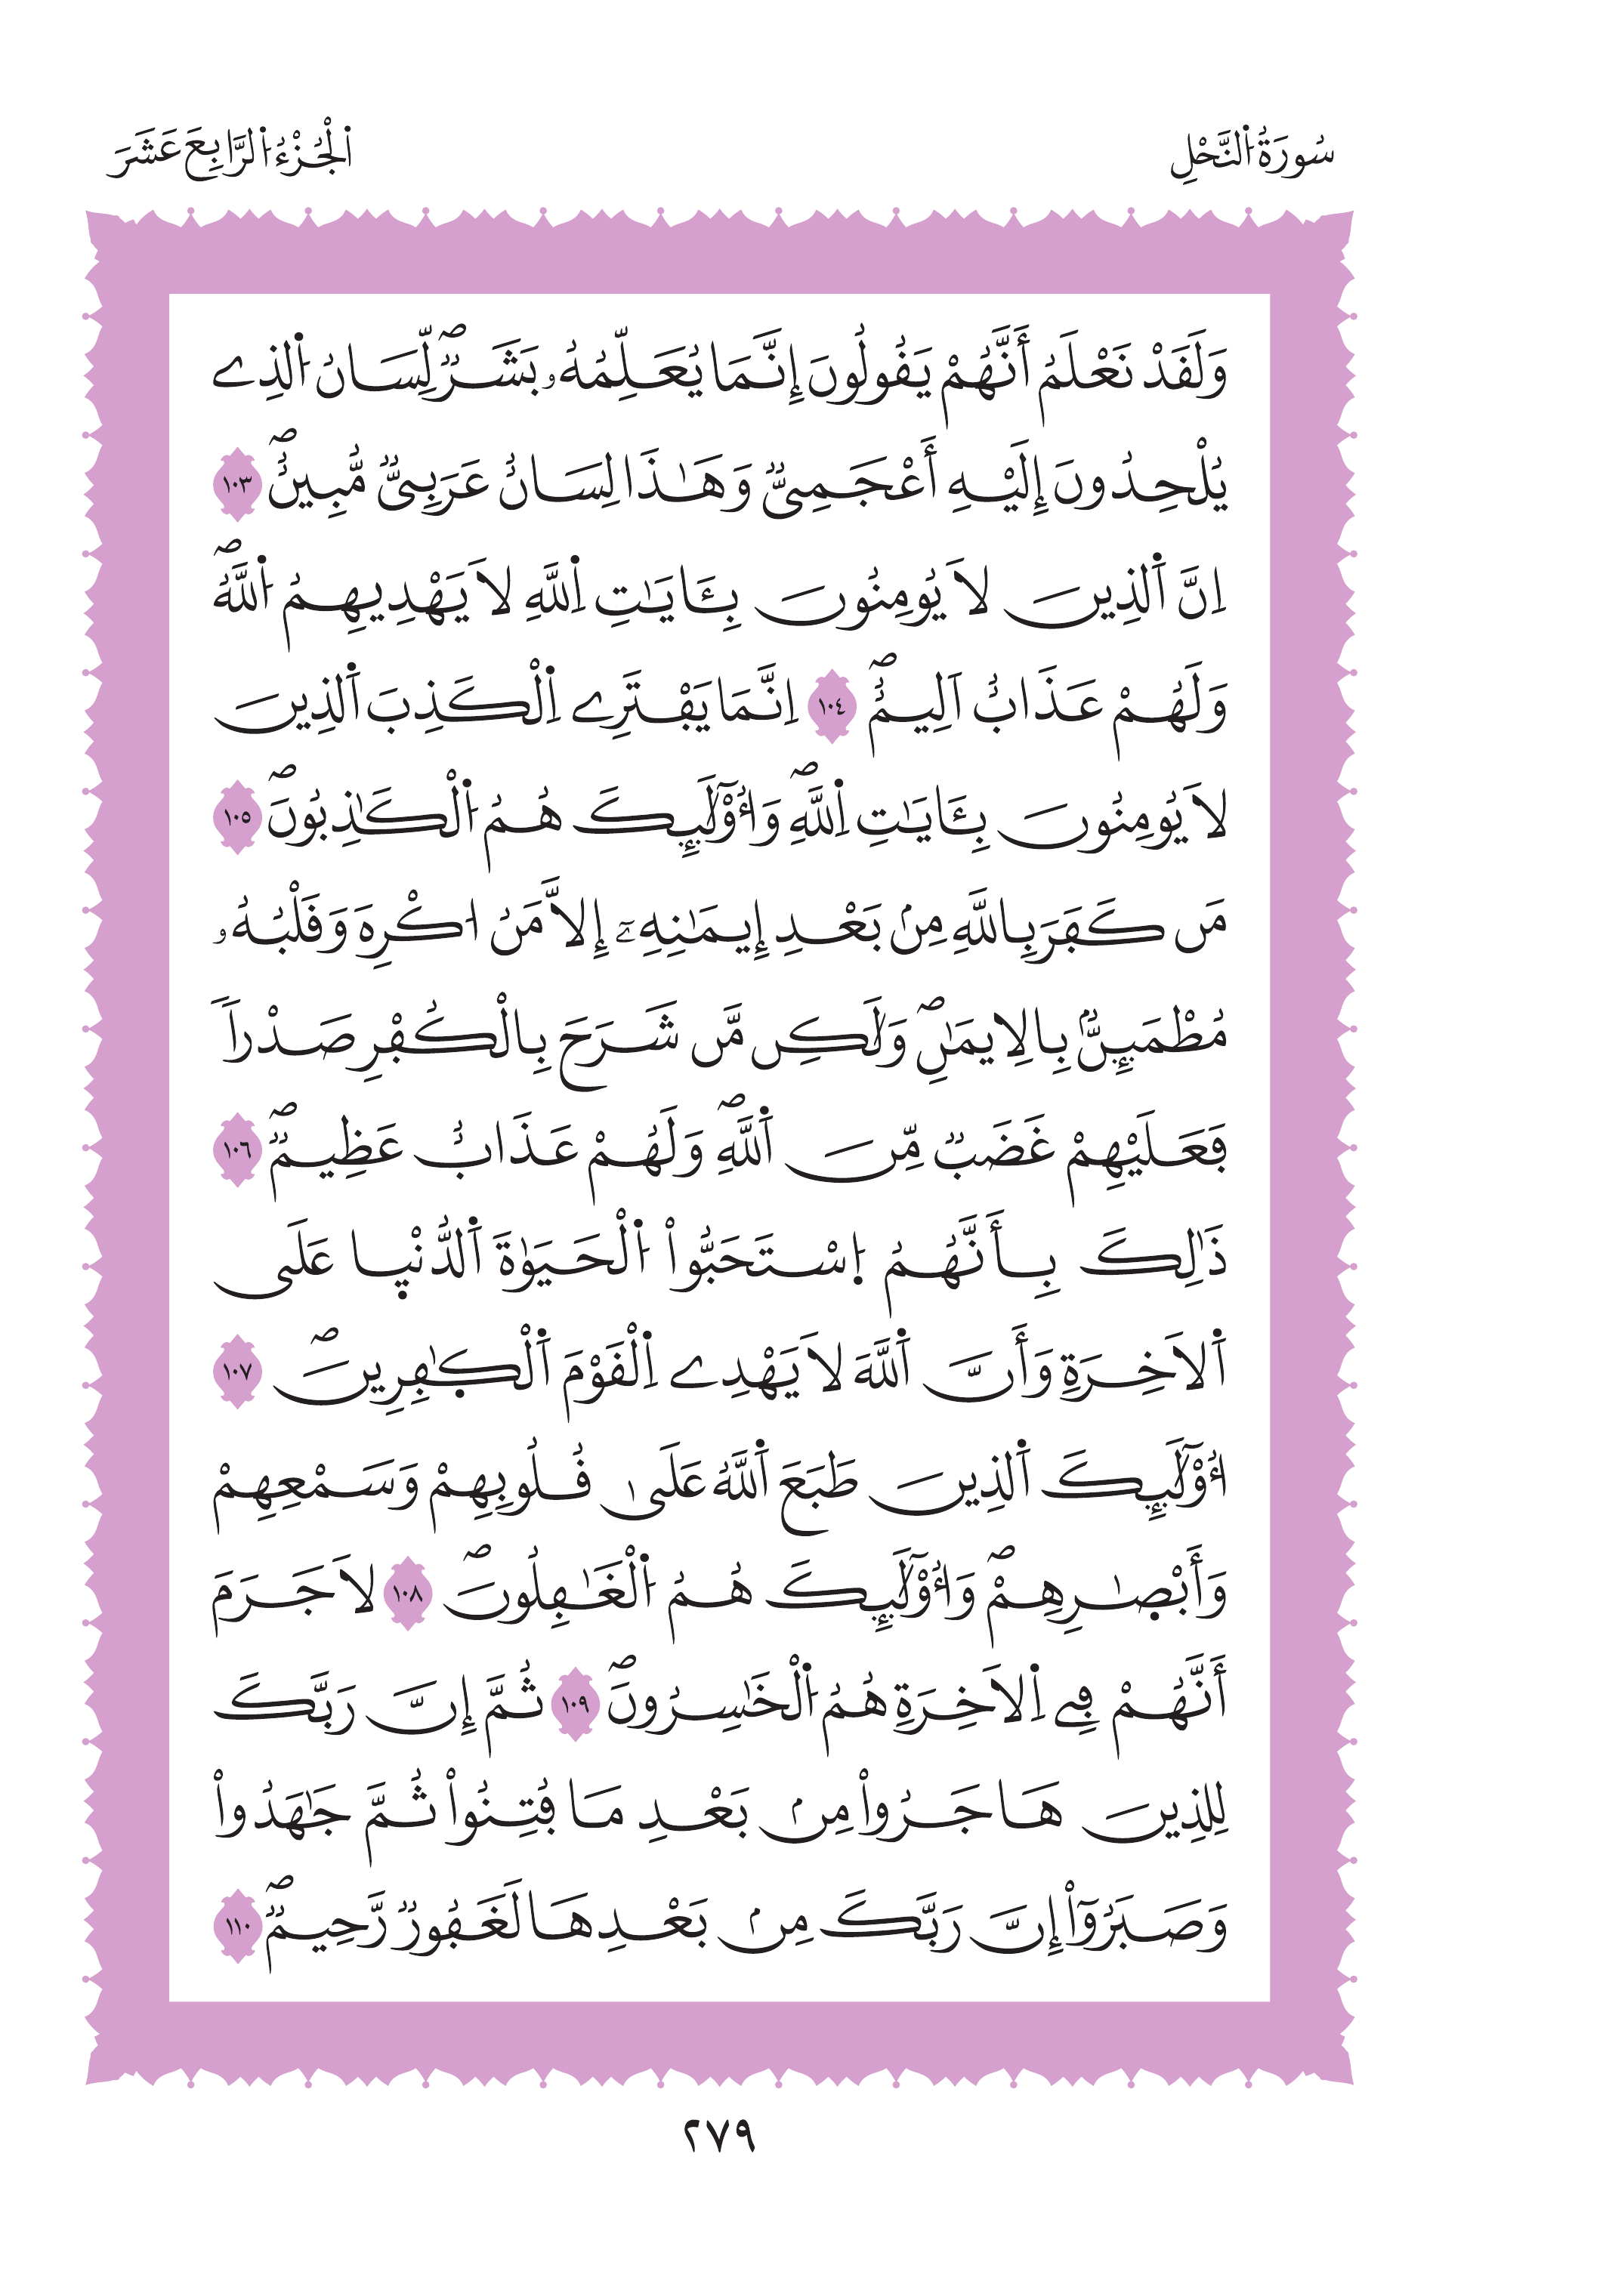 سُورَةُ اُ۬لنَّحْلِ
اَ۬لْجُزْءُ اُ۬لرَّابِعَ عَشَرَ
وَلَقَدْ نَعْلَمُ أَنَّهُمْ يَقُولُونَ إِنَّمَا يُعَلِّمُهُۥ بَشَرٞۖ لِّسَانُ اُ۬لذِے
يُلْحِدُونَ إِلَيْهِ أَعْجَمِيّٞ وَهَٰذَا لِسَانٌ عَرَبِيّٞ مُّبِينٌۖ ١٠٣
اِنَّ اَ۬لذِينَ لَا يُومِنُونَ بِـَٔايَٰتِ اِ۬للَّهِ لَا يَهْدِيهِمُ اُ۬للَّهُۖ
وَلَهُمْ عَذَابٌ اَلِيمٌۖ ١٠٤ اِنَّمَا يَفْتَرِے اِ۬لْكَذِبَ اَ۬لذِينَ
لَا يُومِنُونَ بِـَٔايَٰتِ اِ۬للَّهِۖ وَأُوْلَٰٓئِكَ هُمُ اُ۬لْكَٰذِبُونَۖ ١٠٥
مَن كَفَرَ بِاللَّهِ مِنۢ بَعْدِ إِيمَٰنِهِۦٓ إِلَّا مَنُ ا۟كْرِهَ وَقَلْبُهُۥ
مُطْمَئِنُّۢ بِالِايمَٰنِۖ وَلَٰكِن مَّن شَرَحَ بِالْكُفْرِ صَدْراٗ
فَعَلَيْهِمْ غَضَبٞ مِّنَ اَ۬للَّهِۖ وَلَهُمْ عَذَابٌ عَظِيمٞۖ ١٠٦
ذَٰلِكَ بِأَنَّهُمُ اُ۪سْتَحَبُّواْ اُ۬لْحَيَوٰةَ اَ۬لدُّنْي۪ا عَلَى
اَ۬لَاخِرَةِ وَأَنَّ اَ۬للَّهَ لَا يَهْدِے اِ۬لْقَوْمَ اَ۬لْكٰ۪فِرِينَۖ ١٠٧
أُوْلَٰٓئِكَ اَ۬لذِينَ طَبَعَ اَ۬للَّهُ عَلَىٰ قُلُوبِهِمْ وَسَمْعِهِمْ
وَأَبْصٰ۪رِهِمْۖ وَأُوْلَٰٓئِكَ هُمُ اُ۬لْغَٰفِلُونَۖ ١٠٨ لَا جَرَمَ
أَنَّهُمْ فِے اِ۬لَاخِرَةِ هُمُ اُ۬لْخَٰسِرُونَۖ ١٠٩ ثُمَّ إِنَّ رَبَّكَ
لِلذِينَ هَاجَرُواْ مِنۢ بَعْدِ مَا فُتِنُواْ ثُمَّ جَٰهَدُواْ
وَصَبَرُوٓاْ إِنَّ رَبَّكَ مِنۢ بَعْدِهَا لَغَفُورٞ رَّحِيمٞۖ ١١٠
٢٧٩